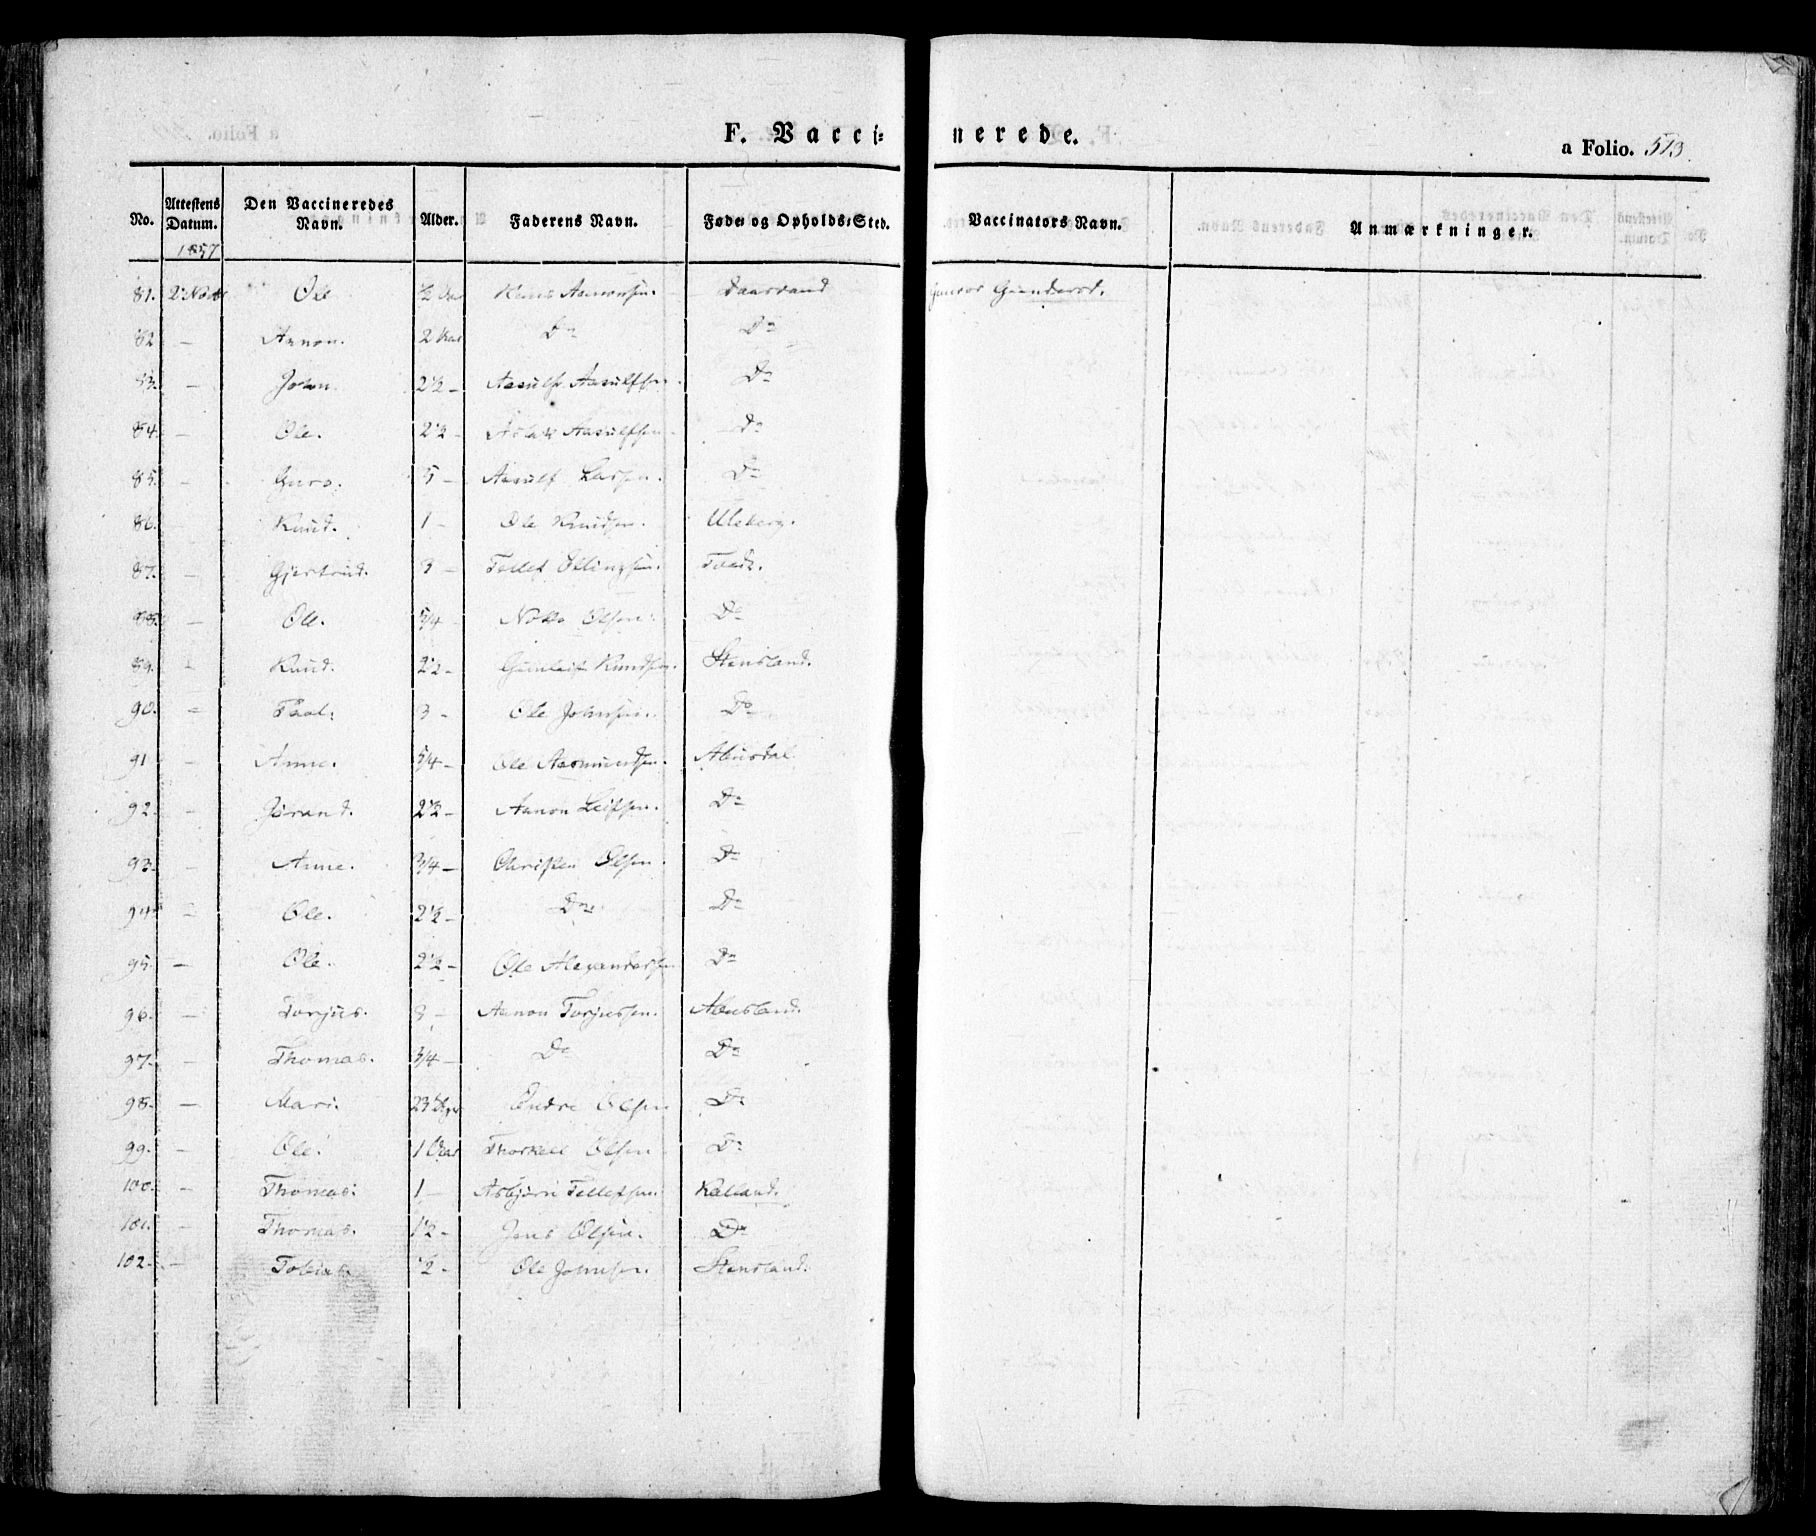 F. Vaccinerede.
a Folio. 573.
No. Attestens Datum. Den Vaccineredes Navn. Alder. Faderens Navn. Føde- og Opholds-Sted. Vaccinators Navn. Anmærkninger.
1857
81. 2 Ole ½ Aar Aanonsen. Haarand Gunvor
82 — Aanon. 2 Aar Do Do
83. — John. 2½ — Aasulf Aasulfsen. Do
84. — Ole. 2½ — Aslak Aasulfsen Do
85. — Guro. 5 — Aasulf Do
86. Knud. 1 — Ole Knudsen. Uleberg.
87. — Gjertrud. 3 — Tellef
88. — Ole. 5/4 — Olsen. Do
89. — Knud. 2½ — Gunleif Knudsen. Stensland.
90. — Paal. 3 — Ole Johnsen. Do
91 — Anne. 5/4 — Ole Aasmundsen. Abusdal.
92. — Jørand. 2½ — Aanon Leifsen. Do
93. — Anne. 3/4 — Christen Olsen. Do
94. — Ole. 2½ — Do Do
95. — Ole. 2½ — Ole Alexandersen Do
96. — Torjus. 8 — Aanon Torjussen. Abusland.
97. — Thomas. 3/4 — Do Do
98. — Mari. 23 Uger Ondre Olsen Do
99. — Ole. 1 Aar Thorkell Olsen Do
100. — Thomas. 1 — Asbjørn Tellefsen. Kalland.
101. — Thomas. 1½ — Jens Olsen. Do
102. — Tobias. ½ — Ole Johnsen. Stensland.